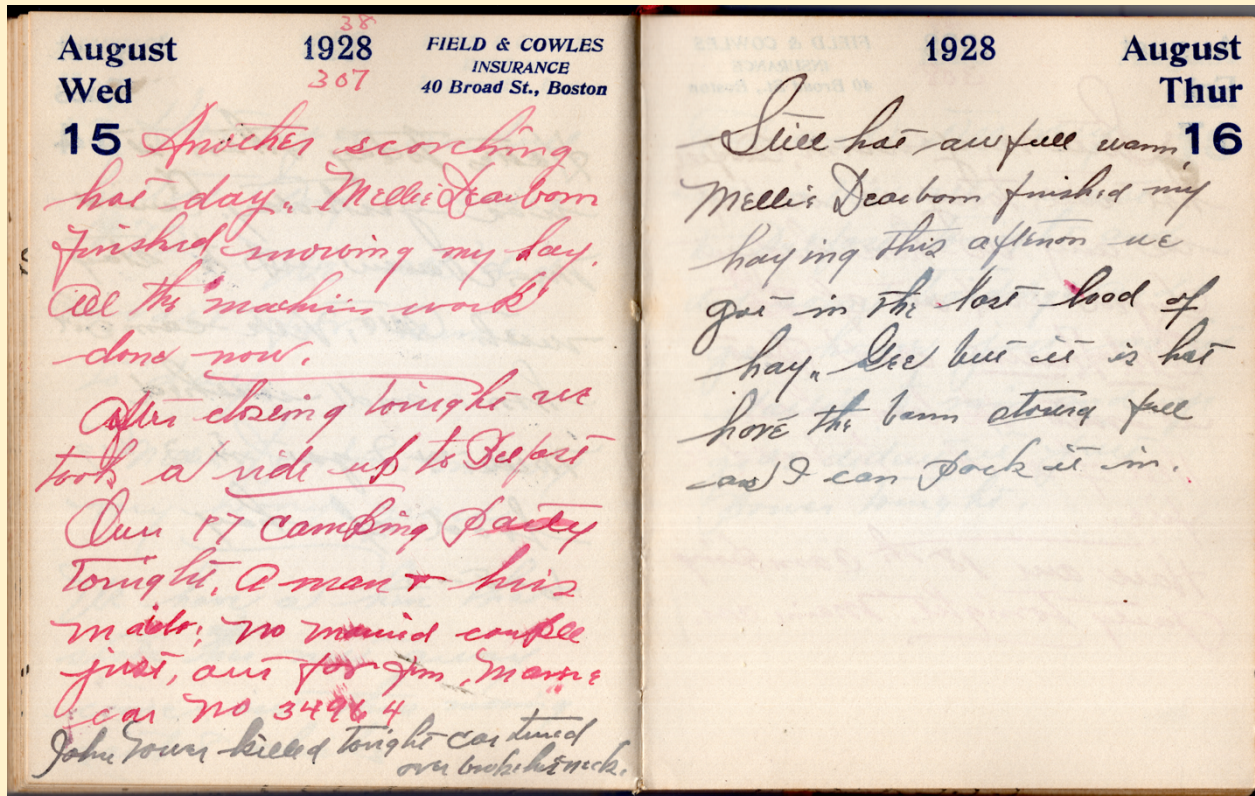 August
Wed
15
38
1928
307
FIELD & COWLES
INSURANCE
40 Broad St., Boston
Another scorching
hot day. Mellie Dearborn
finished mowing my hay.
All the machine work
done now.
After closing tonight we
took a ride up to Belfast
Our 17 camping party
tonight. A man & his
no married couple
just, out for fun, Maine
car No 34964
John Tower killed tonight car turned
over broke his neck.
1928
August
Thur
16
Still hot awfull warm,
Mellie Dearborn finished my
haying this afternon we
got in the last lood of
hay. Gee but it is hot
have the barn full
and I can pack it in.